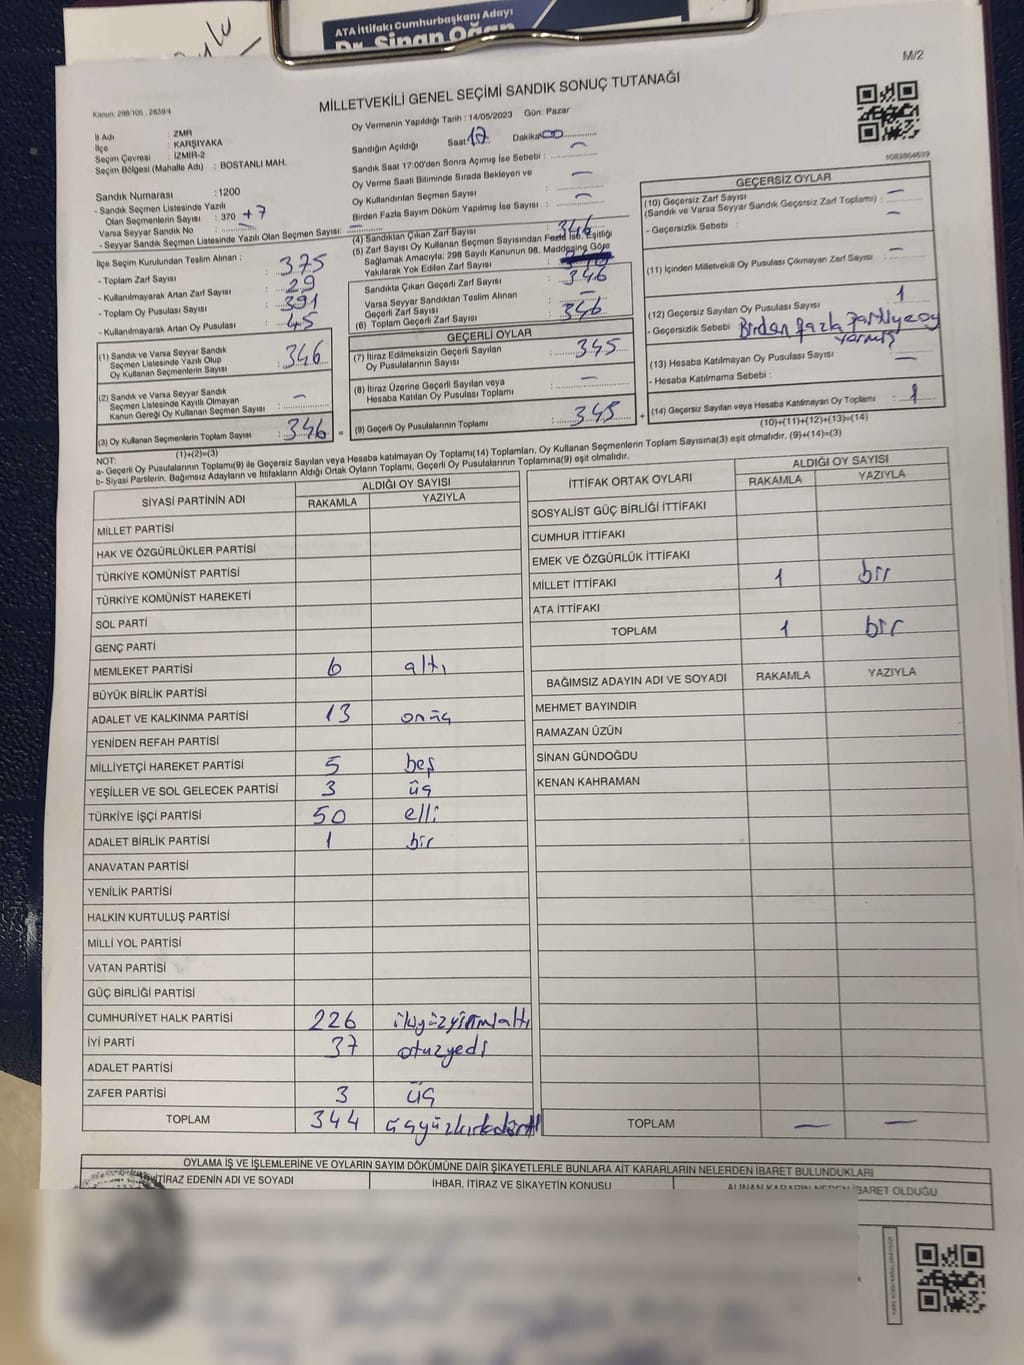 ATA İttifakı Cumhurbaşkanı Adayı
Dr. Sinan Oğan
M/2
MİLLETVEKİLİ GENEL SEÇİMİ SANDIK SONUÇ TUTANAĞI
İl Adı : İZMİR
İlçe : KARŞIYAKA
Seçim Çevresi : İZMİR-2
Seçim Bölgesi (Mahalle Adı) : BOSTANLI MAH.
Sandık Numarası : 1200
- Sandık Seçmen Listesinde Yazılı
Olan Seçmenlerin Sayısı : 370 +7
Varsa Seyyar Sandık No
- Seyyar Sandık Seçmen Listesinde Yazılı Olan Seçmen Sayısı: —
Oy Vermenin Yapıldığı Tarih : 14/05/2023 Gün: Pazar
Sandığın Açıldığı Saat 17 Dakika 00
Sandık Saat 17:00'den Sonra Açımış İse Sebebi : —
Oy Verme Saati Bitiminde Sırada Bekleyen ve
Oy Kullandırılan Seçmen Sayısı : —
Birden Fazla Sayım Döküm Yapılmış İse Sayısı : —
İlçe Seçim Kurulundan Teslim Alınan ;
- Toplam Zarf Sayısı : 375
- Kullanılmayarak Artan Zarf Sayısı : 29
- Toplam Oy Pusulası Sayısı : 391
- Kullanılmayarak Artan Oy Pusulası : 45
(1) Sandık ve Varsa Seyyar Sandık
Seçmen Listesinde Yazılı Olup
Oy Kullanan Seçmenlerin Sayısı : 346
(2) Sandık ve Varsa Seyyar Sandık
Seçmen Listesinde Kayıtlı Olmayan
Kanun Gereği Oy Kullanan Seçmen Sayısı : —
(3) Oy Kullanan Seçmenlerin Toplam Sayısı : 346
(1)+(2)=(3)
(4) Sandıktan Çıkan Zarf Sayısı : 346
(5) Zarf Sayısı Oy Kullanan Seçmen Sayısından Fazla İse, Eşitliği
Sağlamak Amacıyla; 298 Sayılı Kanunun 98. Maddesine Göre
Yakılarak Yok Edilen Zarf Sayısı
Sandıkta Çıkan Geçerli Zarf Sayısı : 346
Varsa Seyyar Sandıktan Teslim Alınan
Geçerli Zarf Sayısı : —
(6) Toplam Geçerli Zarf Sayısı : 346
GEÇERLİ OYLAR
(7) İtiraz Edilmeksizin Geçerli Sayılan
Oy Pusulalarının Sayısı : 345
(8) İtiraz Üzerine Geçerli Sayılan veya
Hesaba Katılan Oy Pusulası Toplamı : —
(9) Geçerli Oy Pusulalarının Toplamı : 345
GEÇERSİZ OYLAR
(10) Geçersiz Zarf Sayısı
(Sandık ve Varsa Seyyar Sandık Geçersiz Zarf Toplamı) : —
- Geçersizlik Sebebi : —
(11) İçinden Milletvekili Oy Pusulası Çıkmayan Zarf Sayısı : —
(12) Geçersiz Sayılan Oy Pusulası Sayısı : 1
- Geçersizlik Sebebi : Birden fazla partiye oy
vermiş
(13) Hesaba Katılmayan Oy Pusulası Sayısı : —
- Hesaba Katılmama Sebebi :
(14) Geçersiz Sayılan veya Hesaba Katılmayan Oy Toplamı : 1
(10)+(11)+(12)+(13)=(14)
NOT:
a- Geçerli Oy Pusulalarının Toplamı(9) ile Geçersiz Sayılan veya Hesaba katılmayan Oy Toplamı(14) Toplamları, Oy Kullanan Seçmenlerin Toplam Sayısına(3) eşit olmalıdır. (9)+(14)=(3)
b- Siyasi Partilerin, Bağımsız Adayların ve İttifakların Aldığı Ortak Oyların Toplamı, Geçerli Oy Pusulalarının Toplamına(9) eşit olmalıdır.
SİYASİ PARTİNİN ADI ALDIĞI OY SAYISI
RAKAMLA YAZIYLA
MİLLET PARTİSİ
HAK VE ÖZGÜRLÜKLER PARTİSİ
TÜRKİYE KOMÜNİST PARTİSİ
TÜRKİYE KOMÜNİST HAREKETİ
SOL PARTİ
GENÇ PARTİ
MEMLEKET PARTİSİ 6 altı
BÜYÜK BİRLİK PARTİSİ
ADALET VE KALKINMA PARTİSİ 13 onüç
YENİDEN REFAH PARTİSİ
MİLLİYETÇİ HAREKET PARTİSİ 5 beş
YEŞİLLER VE SOL GELECEK PARTİSİ 3 üç
TÜRKİYE İŞÇİ PARTİSİ 50 elli
ADALET BİRLİK PARTİSİ 1 bir
ANAVATAN PARTİSİ
YENİLİK PARTİSİ
HALKIN KURTULUŞ PARTİSİ
MİLLİ YOL PARTİSİ
VATAN PARTİSİ
GÜÇ BİRLİĞİ PARTİSİ
CUMHURİYET HALK PARTİSİ 226 ikiyüzyirmialtı
İYİ PARTİ 37 otuzyedi
ADALET PARTİSİ
ZAFER PARTİSİ 3 üç
TOPLAM 344 üçyüzkırkdört
İTTİFAK ORTAK OYLARI ALDIĞI OY SAYISI
RAKAMLA YAZIYLA
SOSYALİST GÜÇ BİRLİĞİ İTTİFAKI
CUMHUR İTTİFAKI
EMEK VE ÖZGÜRLÜK İTTİFAKI
MİLLET İTTİFAKI 1 bir
ATA İTTİFAKI
TOPLAM 1 bir
BAĞIMSIZ ADAYIN ADI VE SOYADI RAKAMLA YAZIYLA
MEHMET BAYINDIR
RAMAZAN ÜZÜN
SİNAN GÜNDOĞDU
KENAN KAHRAMAN
TOPLAM — —
OYLAMA İŞ VE İŞLEMLERİNE VE OYLARIN SAYIM DÖKÜMÜNE DAİR ŞİKAYETLERLE BUNLARA AİT KARARLARIN NELERDEN İBARET BULUNDUKLARI
İTİRAZ EDENİN ADI VE SOYADI İHBAR, İTİRAZ VE ŞİKAYETİN KONUSU ALINAN KARARIN NEDEN İBARET OLDUĞU